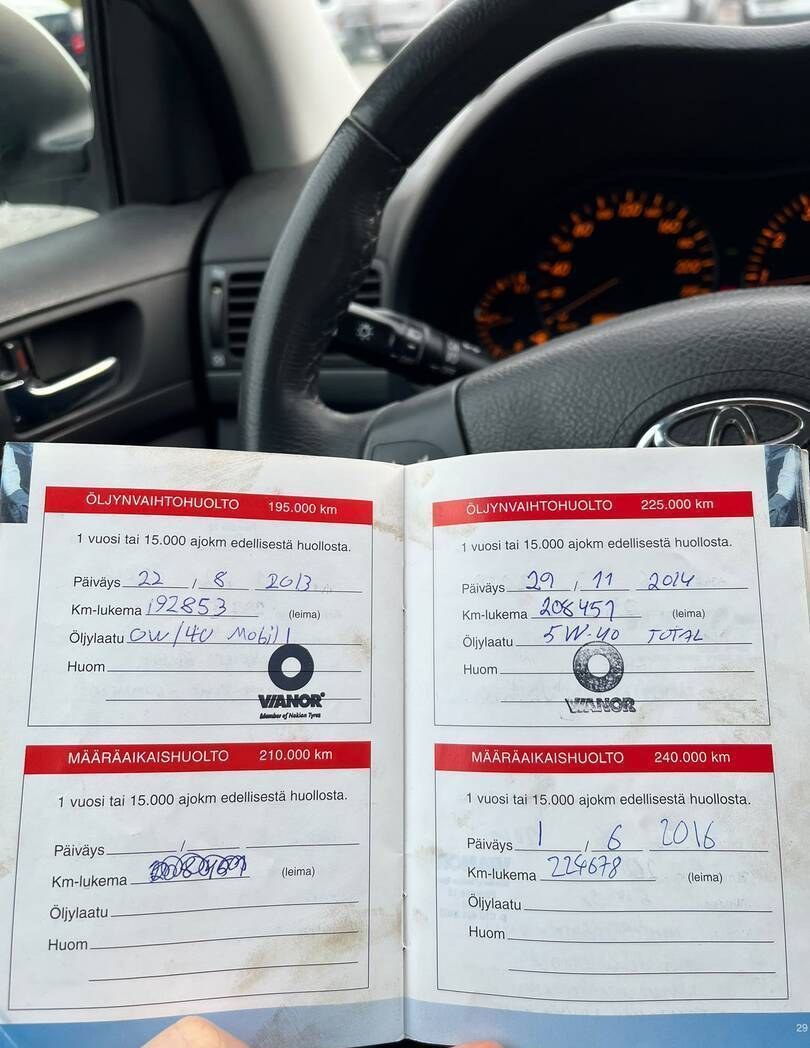 ÖLJYNVAIHTOHUOLTO 195.000 km
1 vuosi tai 15.000 ajokm edellisestä huollosta.
Päiväys 22 / 8 2013
Km-lukema 192853 (leima)
Öljylaatu 0W/40 Mobil 1
Huom
VIANOR
Member of Nokian Tyres
MÄÄRÄAIKAISHUOLTO 210.000 km
1 vuosi tai 15.000 ajokm edellisestä huollosta.
Päiväys /
Km-lukema (leima)
Öljylaatu
Huom
ÖLJYNVAIHTOHUOLTO 225.000 km
1 vuosi tai 15.000 ajokm edellisestä huollosta.
Päiväys 29 / 11 2014
Km-lukema 208457 (leima)
Öljylaatu 5W-40 TOTAL
Huom
VIANOR
MÄÄRÄAIKAISHUOLTO 240.000 km
1 vuosi tai 15.000 ajokm edellisestä huollosta.
Päiväys 1 / 6 2016
Km-lukema 224678 (leima)
Öljylaatu
Huom
29